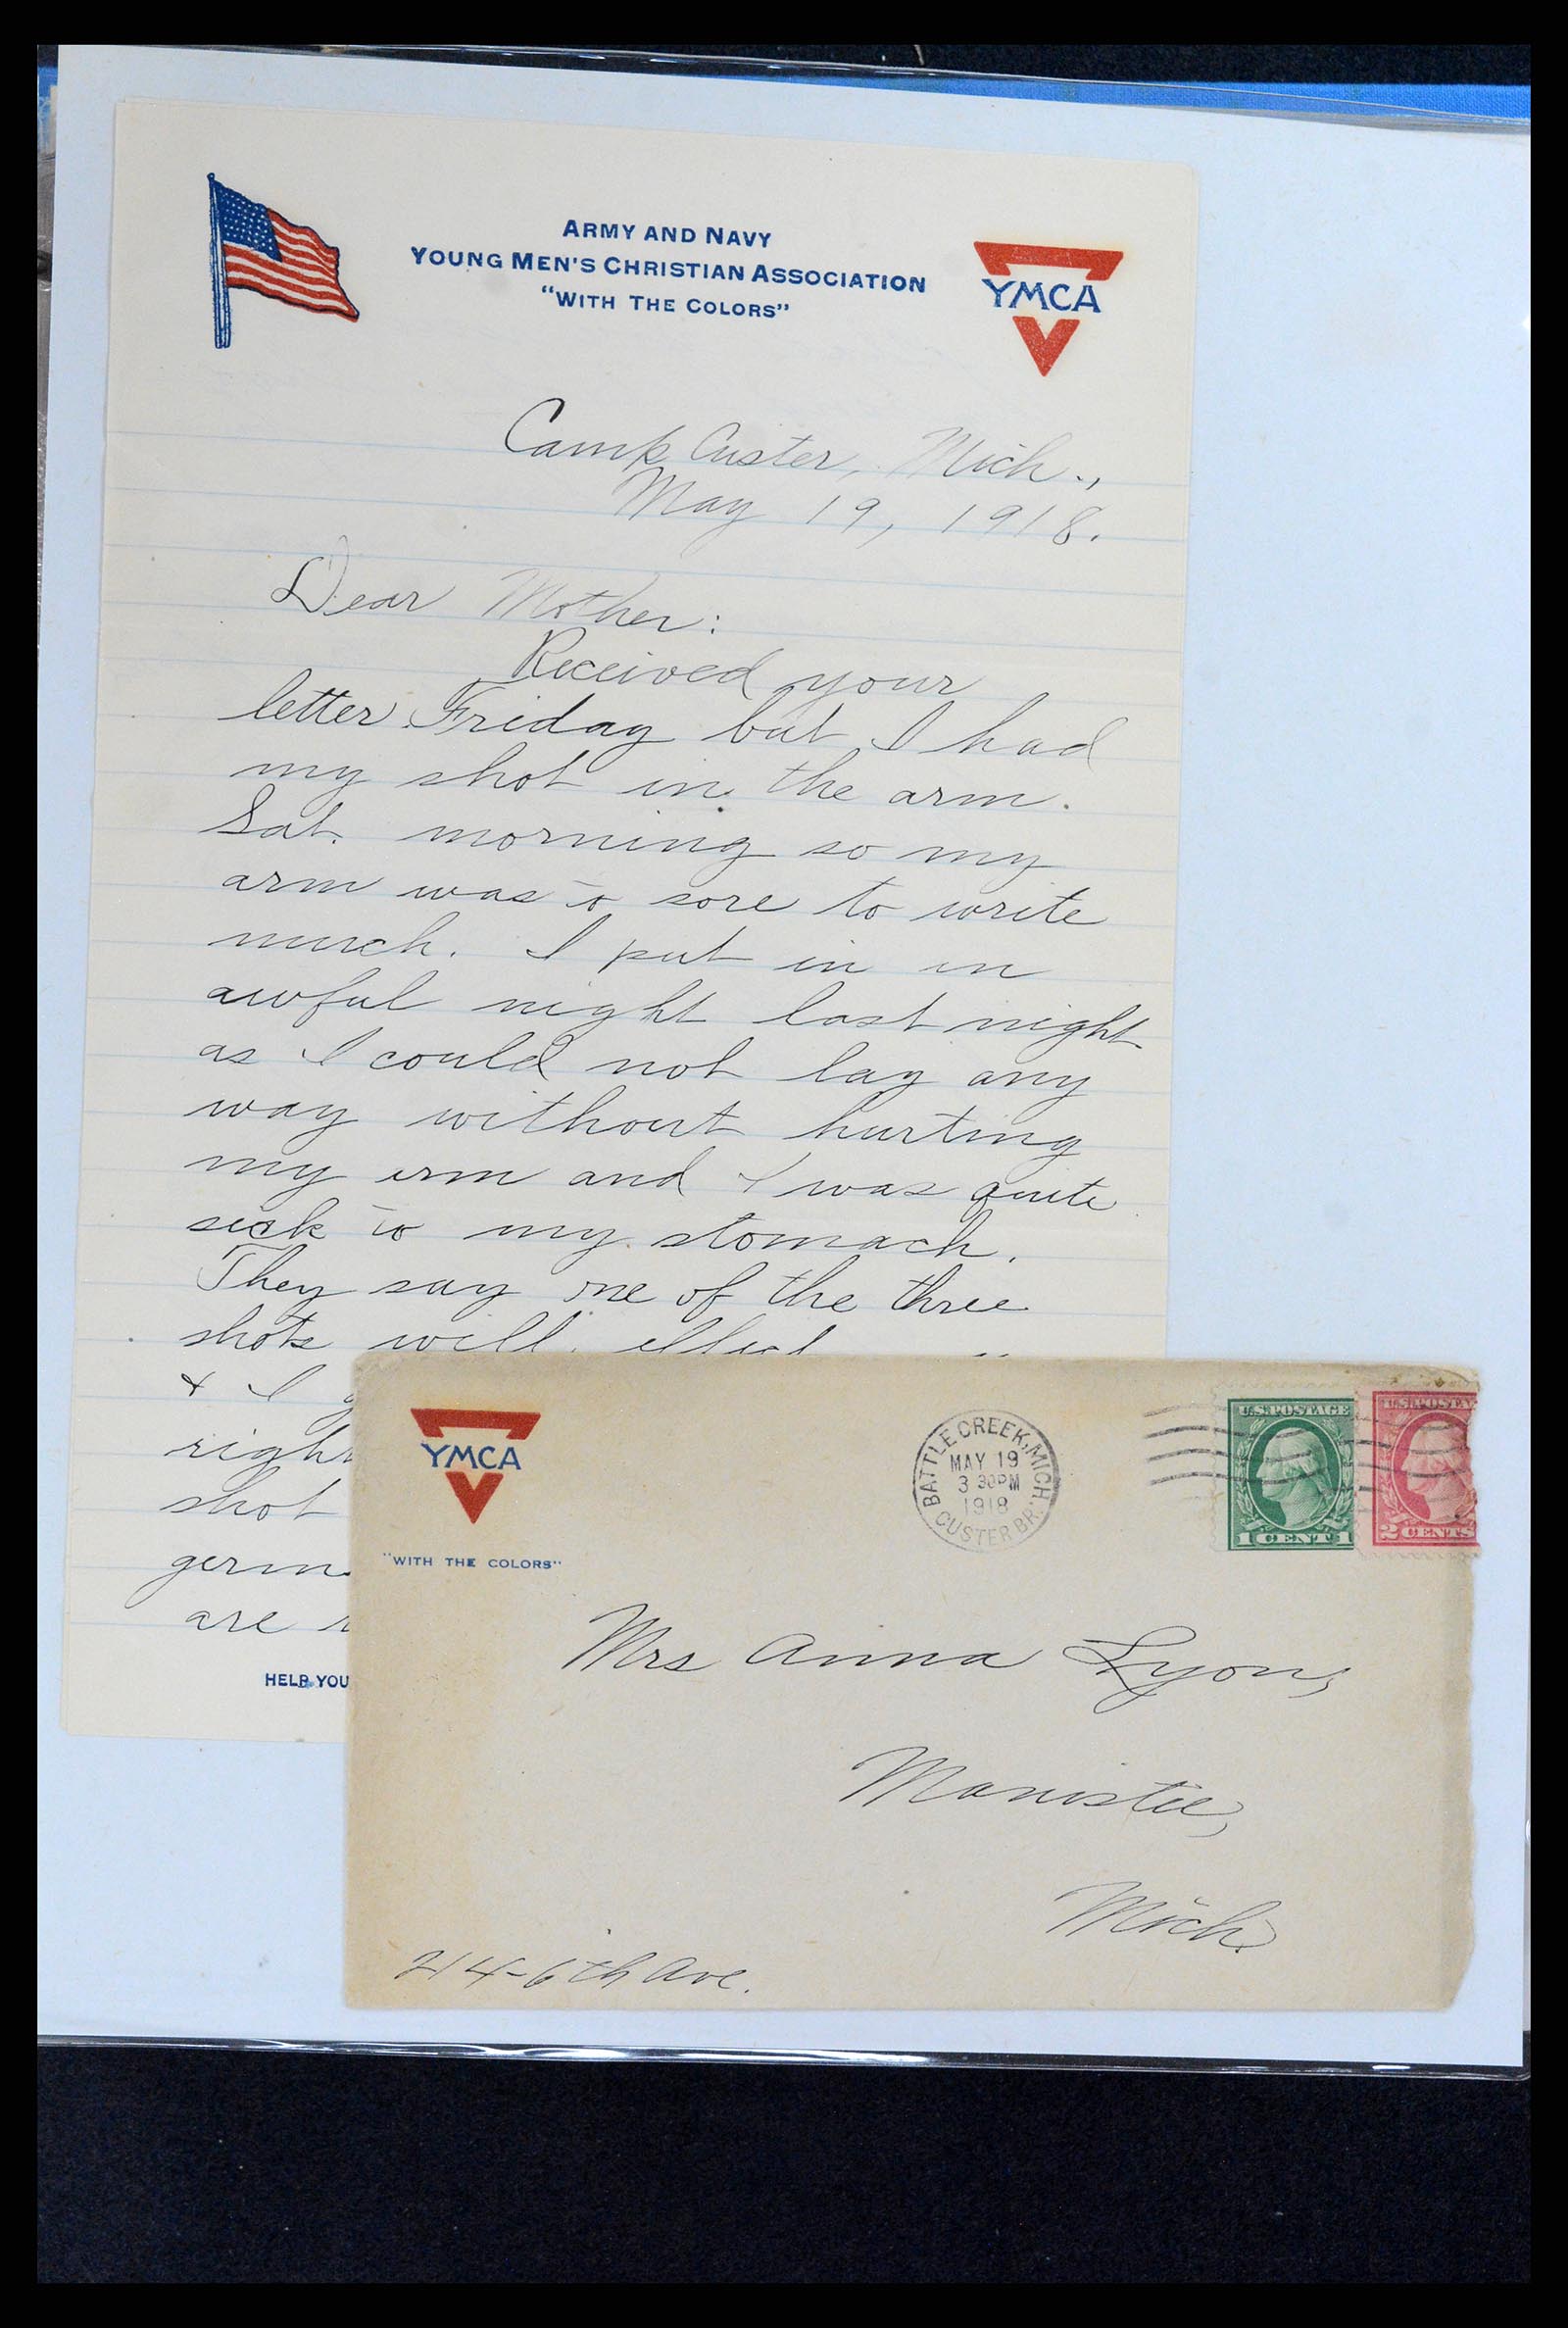 ARMY AND NAVY
YOUNG MEN'S CHRISTIAN ASSOCIATION
"WITH THE COLORS"
YMCA
Camp Custer, Mich.,
May 19, 1918.
Dear Mother:
Received your
letter Friday but I had
my shot in the arm.
Sat. morning so my
arm was to sore to write
much. I put in an
awful night last night
as I could not lay any
way without hurting
my arm and I was quite
sick to my stomach.
They say one of the three
shots will effect
& I
right
shot
germ
are
HELP YOU
YMCA
"WITH THE COLORS"
BATTLE CREEK, MICH.
MAY 19
3 30PM
1918
CUSTER BR.
U.S. POSTAGE
1 CENT 1
U.S. POSTA
2 CENTS
Mrs Anna Lyon,
Manistee,
Mich.
214-6th Ave.